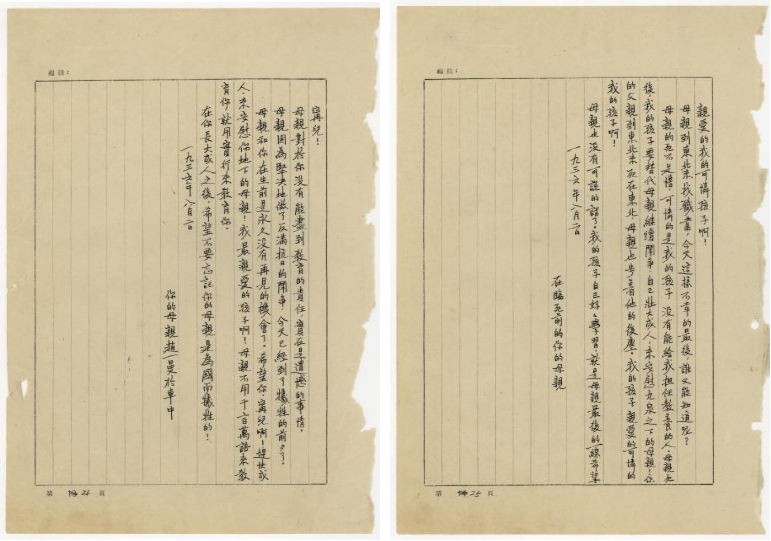 寧兒!
母親對於你沒有能盡到教育的責任,實在是遺憾的事情。
母親因為堅決地做了反滿抗日的鬥爭,今天已經到了犧牲的前夕了。
母親和你在生前是永久沒有再見的機會了。希望你,寧兒啊!趕快成
人,來安慰你地下的母親!我最親愛的孩子啊!母親不用千言萬語來教
育你,就用實行來教育你。
在你長大成人之後,希望不要忘記你的母親是為國而犧牲的!
一九三六年八月二日
你的母親趙一曼於車中
第 24 頁
親愛的我的可憐孩子啊!
母親到東北來找職業,今天這樣不幸的最後,誰又能知道呢?
母親的死不足惜,可憐的是我的孩子,沒有能給我担任教養的人。母親死
後,我的孩子要替代母親繼續鬥爭,自己壯大成人,來安慰九泉之下的母親!你
的父親到東北來死在東北,母親也步着他的後塵。我的孩子,親愛的可憐的
我的孩子啊!
母親也沒有可說的話了,我的孩子自己好好學習,就是母親最後的一線希望
一九三六年八月二日
在臨死前的你的母親
第 25 頁